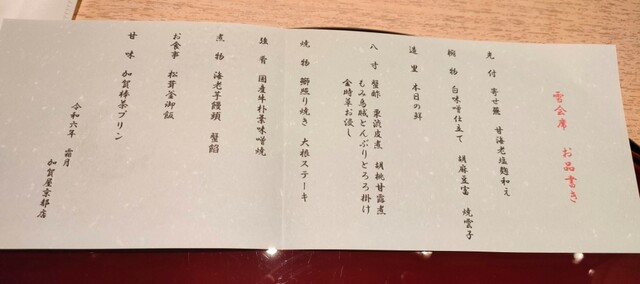 雪会席 お品書き
先付 寄せ蕪 甘海老塩麹和え
椀物 白味噌仕立て 胡麻豆富 焼雲子
造里 本日の鮮
八寸 蟹酢 栗渋皮煮 胡桃甘露煮
もみ烏賊どんぶりとろろ掛け
金時草お浸し
焼物 鰤照り焼き 大根ステーキ
強肴 国産牛朴葉味噌焼
煮物 海老芋饅頭 蟹餡
お食事 松茸釜御飯
甘味 加賀棒茶プリン
令和六年 霜月
加賀屋京都店